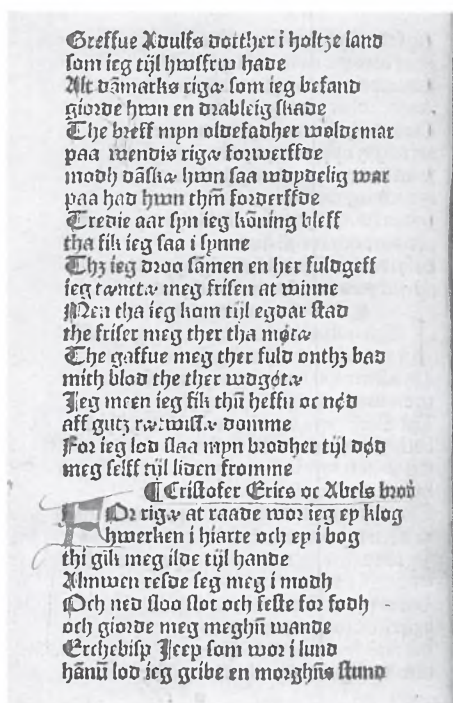 Greffue Adulfs dotther i holtze land
som ieg tijl hwsfrw hade
Alt dāmarks rigæ som ieg befand
giorde hwn en drableig skade
The breff myn oldefadher woldemar
paa wendis rigæ forwerffde
modh dāskæ hwn saa wdydelig war
paa had hwn thm̄ forderffde
Tredie aar syn ieg kōning bleff
tha fik ieg saa i synne
Thz ieg droo sāmen en her fuldgeff
ieg tænctæ meg frisen at winne
Men tha ieg kom tijl egdar stad
the friser meg ther tha møtæ
The gaffue meg ther fuld onthz bad
mith blod the ther wdgøtæ
Jeg meen ieg fik thn̄ heffn oc nød
aff gutz rætwisæ domme
For ieg lod slaa myn brodher tijl død
meg selff tijl liden fromme
¶Cristofer Erics oc Abels brod̄
FOr rigæ at raade wor ieg ey klog
hwerken i hiarte och ey i bog
thi gik meg ilde tijl hande
Almwen resde seg meg i modh
Och ned sloo slot och feste for fodh
och giorde meg meghn̄ wande
Erchebisp Jeep som wor i lund
hānū lod ieg gribe en morghn̄s stund